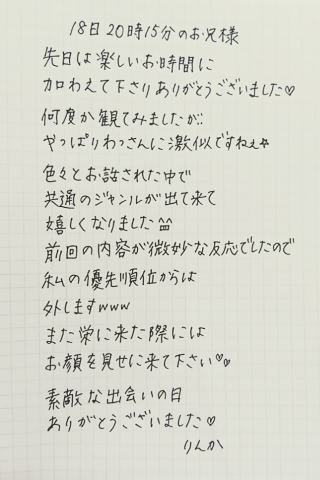 18日20時15分のお兄様
先日は楽しいお時間に
加わえて下さりありがとうございました♡
何度か観てみましたが:
やっぱりわっさんに激似ですねぇ☆
色々とお話された中で
共通のジャンルが出て来て
嬉しくなりました^^
前回の内容が微妙な反応でしたので
私の優先順位からは
外しますwww
また栄に来た際には
お顔を見せに来て下さい♡♡
素敵な出会いの日
ありがとうございました♡
りんか